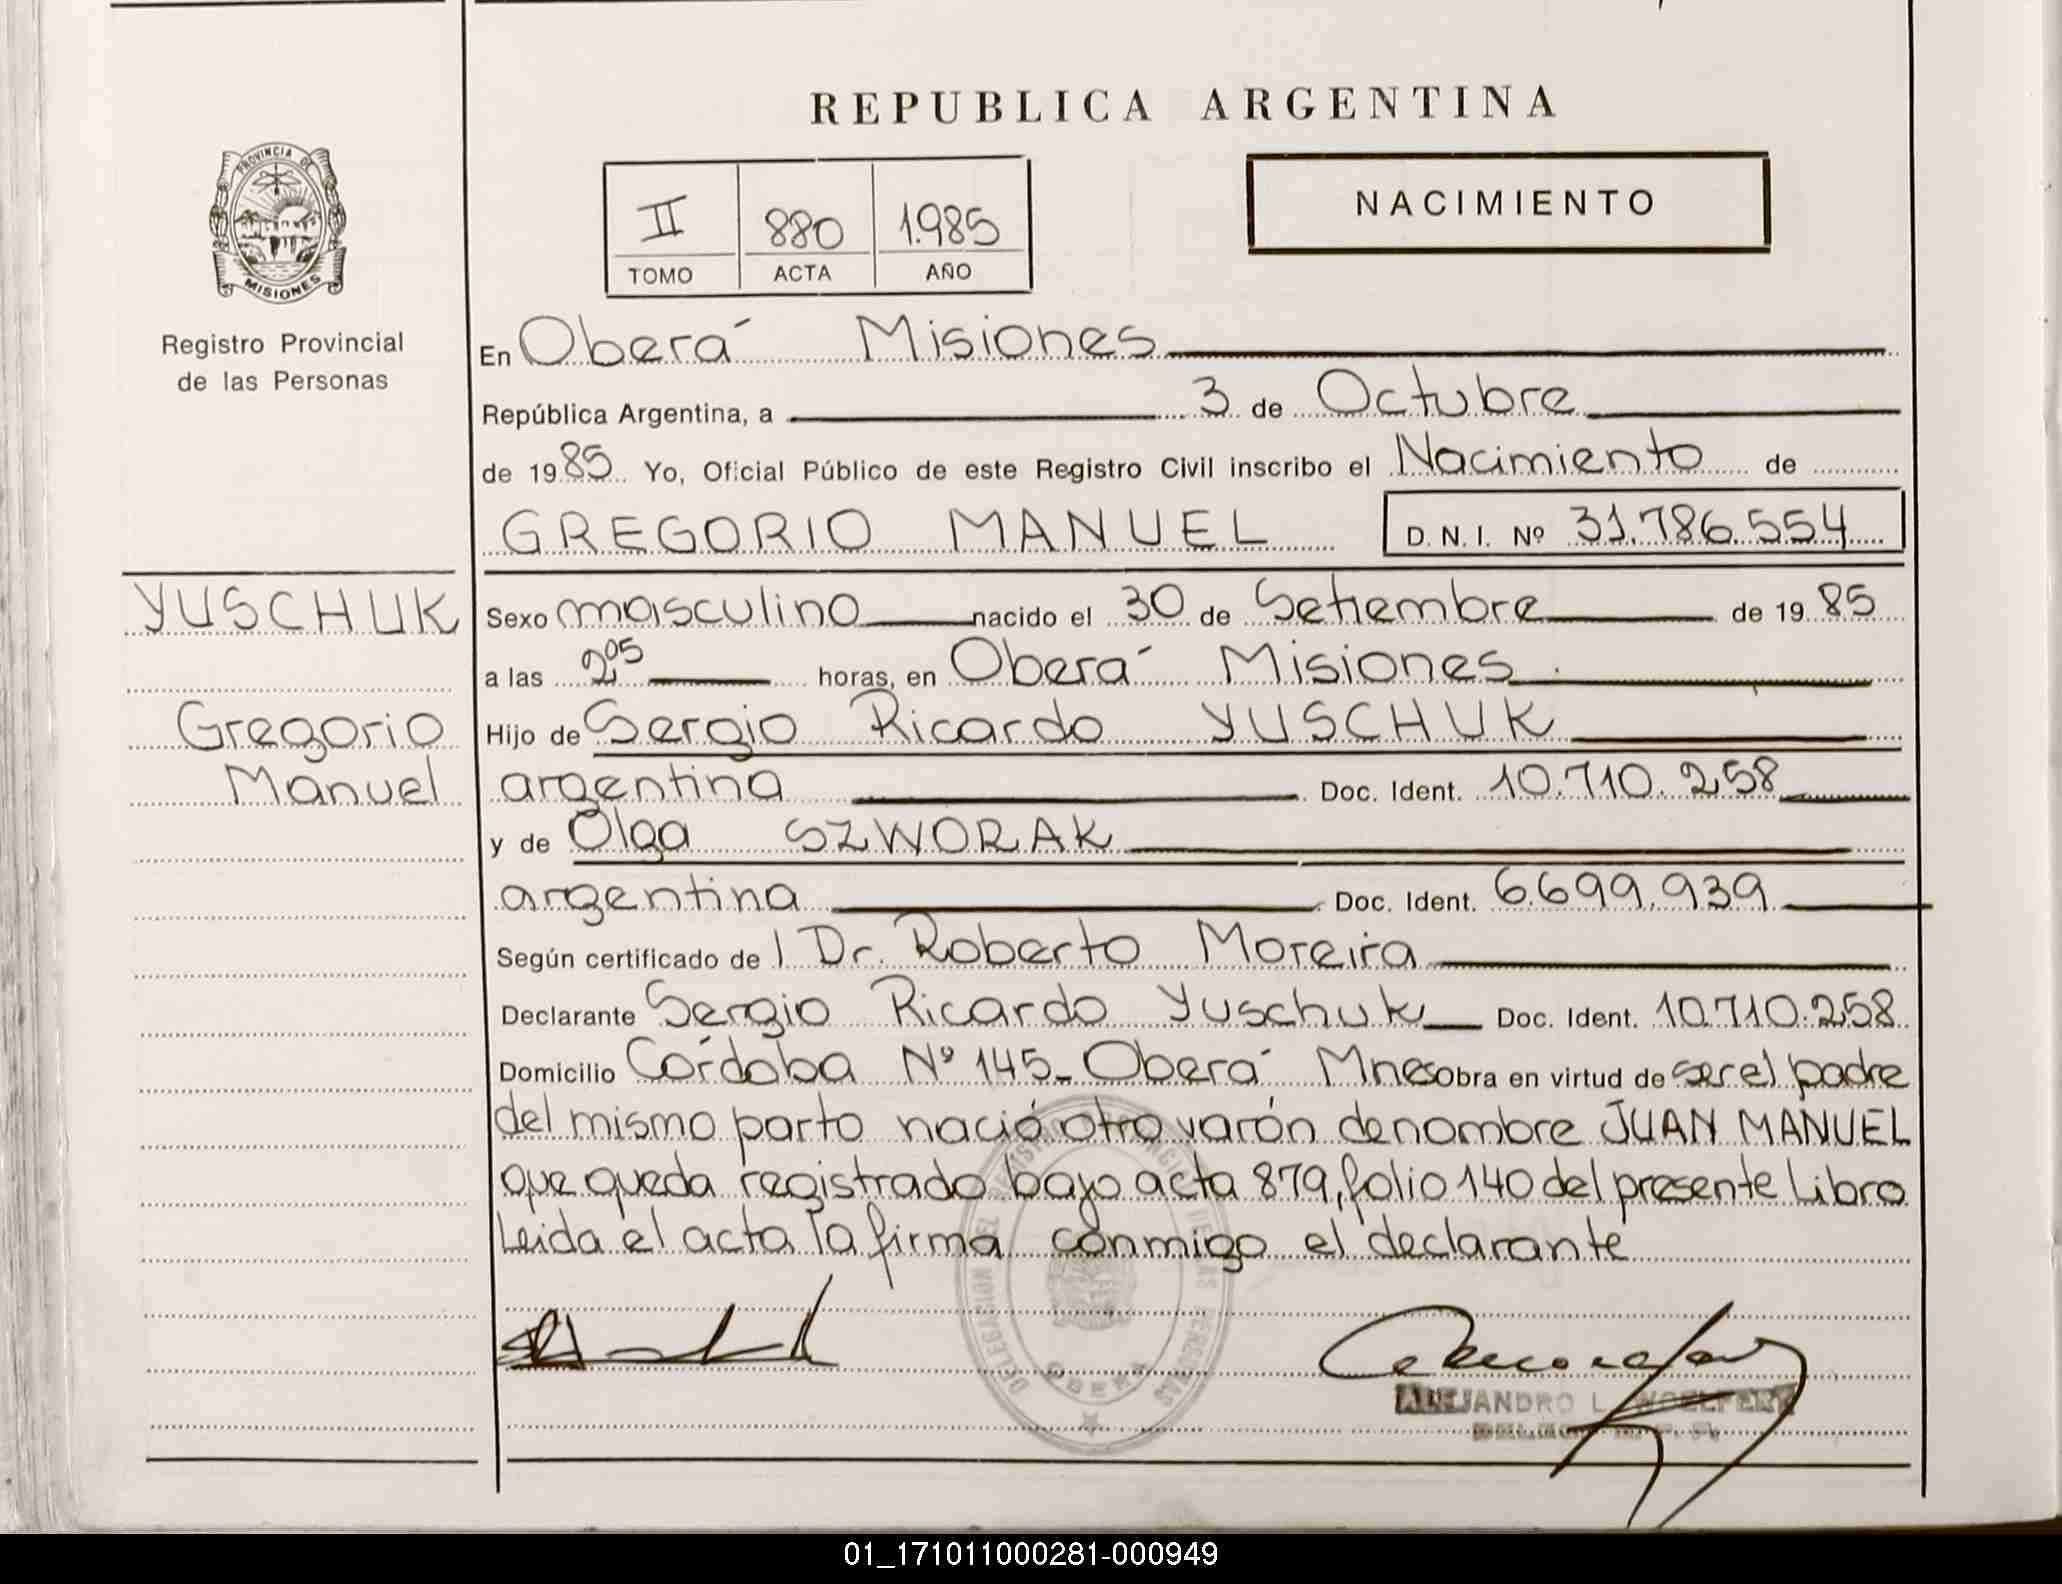 REPUBLICA ARGENTINA
PROVINCIA DE
MISIONES
Registro Provincial
de las Personas
II 880 1.985
TOMO ACTA AÑO
NACIMIENTO
En Oberá Misiones
República Argentina, a 3 de Octubre
de 1985 Yo, Oficial Público de este Registro Civil inscribo el Nacimiento de
GREGORIO MANUEL D. N. I. Nº 31.786.554
YUSCHUK
Gregorio
Manuel
Sexo masculino nacido el 30 de Setiembre de 1985
a las 2,05 horas, en Oberá Misiones
Hijo de Sergio Ricardo YUSCHUK
argentina Doc. Ident. 10.710.258
y de Olga SZWORAK
argentina Doc. Ident. 6.699.939
Según certificado de l Dr. Roberto Moreira
Declarante Sergio Ricardo Yuschuk Doc. Ident. 10.710.258
Domicilio Córdoba Nº 145_ Oberá Mnes obra en virtud de ser el padre
del mismo parto nació otro varón de nombre JUAN MANUEL
que queda registrado bajo acta 879, folio 140 del presente Libro
Leida el acta la firma conmigo el declarante
DELEGACION DEL REGISTRO PROVINCIAL DE LAS PERSONAS
OBERA
ALEJANDRO L. WOELFERT
01_171011000281-000949